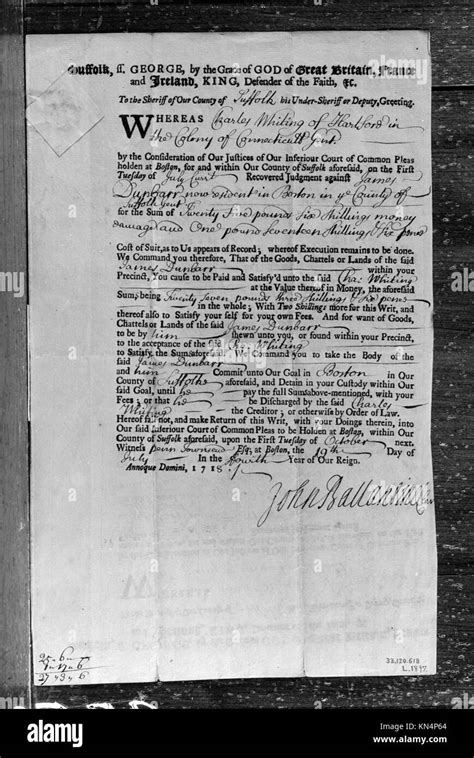 Suffolk, ss. GEORGE, by the Grace of GOD of Great Britain, France
and Ireland, KING, Defender of the Faith, &c.
To the Sheriff of Our County of Suffolk his Under-Sheriff or Deputy, Greeting.
WHEREAS Charles Whiting of Hartford in
the Colony of Connecticutt Gent.
by the Consideration of Our Justices of Our Inferiour Court of Common Pleas
holden at Boston, for and within Our County of Suffolk aforesaid, on the First
Tuesday of July Curr.t Recovered Judgment against James
Dunbarr now resident in Boston in ye County of
Suffolk Gent
for the Sum of Twenty Five pounds Six Shillings money
damage and One pound seventeen Shillings & Six pence
Cost of Suit, as to Us appears of Record; whereof Execution remains to be done.
We Command you therefore, That of the Goods, Chattels or Lands of the said
James Dunbarr within your
Precinct, You cause to be Paid and Satisfy'd unto the said Cha: Whiting
at the Value thereof in Money, the aforesaid
Sum; being Twenty Seven pounds three Shillings & Six pens
in the whole; With Two Shillings more for this Writ, and
thereof also to Satisfy your self for your own Fees. And for want of Goods,
Chattels or Lands of the said James Dunbarr
to be by him shewn unto you, or found within your Precinct,
to the acceptance of the said Whiting
to Satisfy the Sum aforesaid, We Command you to take the Body of the
said James Dunbarr
and him Commit unto Our Goal in Boston in Our
County of Suffolke aforesaid, and Detain in your Custody within Our
said Goal, until he pay the full Sum above-mentioned, with your
Fees; or that he be Discharged by the said Charles
Whiting the Creditor; or otherwise by Order of Law.
Hereof fail not, and make Return of this Writ, with your Doings therein, into
Our said Inferiour Court of Common Pleas to be Holden at Boston, within Our
County of Suffolk aforesaid, upon the First Tuesday of October next.
Witness Penn Townsend Esq; at Boston, the 19th Day of
July In the Year of Our Reign.
Annoque Domini, 1718
John Ballantine
25 - 6 -
1 - 17 - 6
27 - 3 - 6
33.120.618
L.1897
alamy
Image ID: KN4P64
www.alamy.com